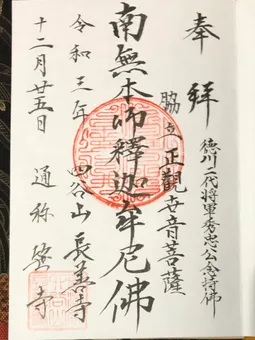 奉拜
徳川二代將軍秀忠公念持佛
脇立正觀世音菩薩
南無本師釋迦牟尼佛
令和三年
四谷山長善寺
十二月廿五日
通称笹寺